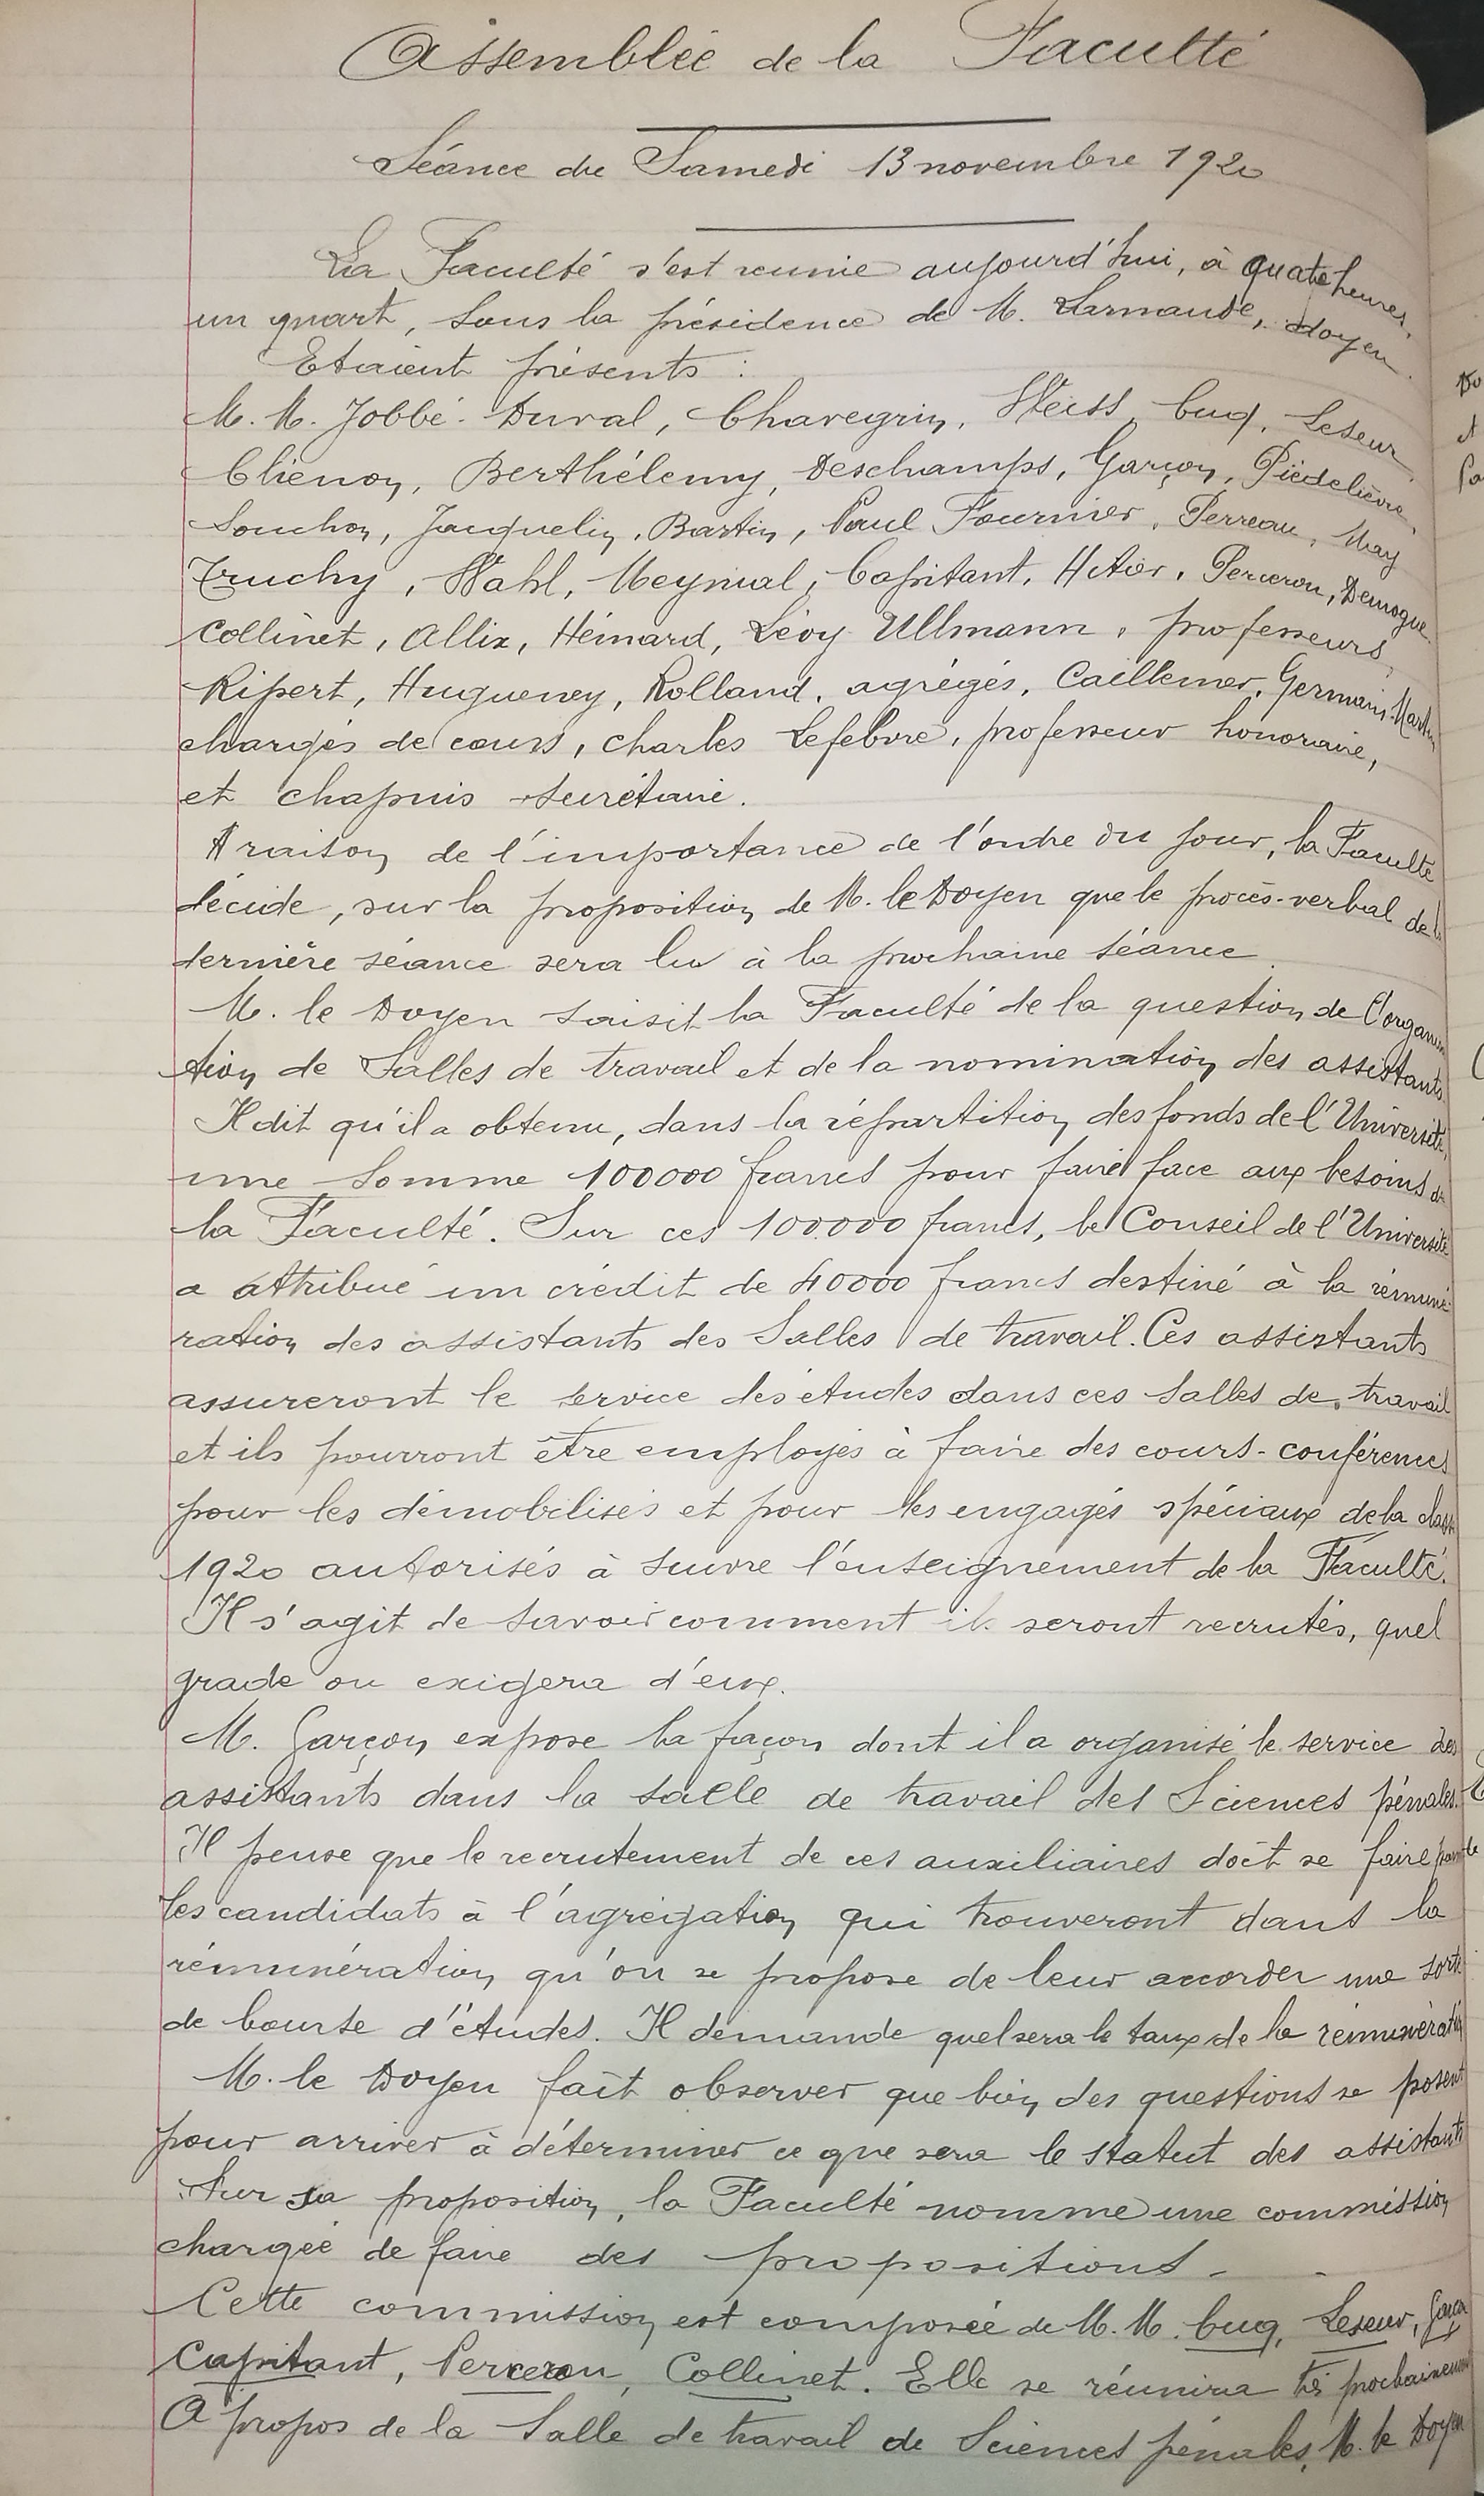 Assemblée de la Faculté
Séance du Samedi 13 novembre 1920
La Faculté s'est reunie aujourd'hui, à quatre heures
un quart, sous la présidence de M. Larnaude, doyen.
Etaient présents :
M. M. Jobbé-Duval, Chavegrin, Weiss, Cuq, Leseur
Chénon, Berthélemy, Deschamps, Garçon, Piédelièvre,
Souchon, Jacquelin, Bartin, Paul Fournier, Perreau, May
Truchy, Wahl, Meynial, Capitant, Hitier, Percerou, Demogue
Collinet, Allix, Hémard, Lévy-Ullmann, professeurs,
Ripert, Hugueney, Rolland, agrégés, Caillemer, Germain-Martin
chargés de cours, Charles Lefebvre, professeur honoraire,
et Chapuis secrétaire.
A raison de l'importance de l'ordre du jour, la Faculté
décide, sur la proposition de M. le Doyen que le procès-verbal de la
dernière séance sera lu à la prochaine séance.
M. le Doyen saisit la Faculté de la question de l'organisa
tion de Salles de travail et de la nomination des assistants.
Il dit qu'il a obtenu, dans la répartition des fonds de l'Université,
une somme 100000 francs pour faire face aux besoins de
la Faculté. Sur ces 100.000 francs, le Conseil de l'Université
a attribué un crédit de 40000 francs destiné à la rémuné-
ration des assistants des Salles de travail. Ces assistants
assureront le service des études dans ces salles de travail
et ils pourront être employés à faire des cours-conférences
pour les démobilisés et pour les engagés spéciaux de la classe
1920 autorisés à suivre l'enseignement de la Faculté.
Il s'agit de savoir comment ils seront recrutés, quel
grade on exigera d'eux.
M. Garçon expose la façon dont il a organisé le service des
assistants dans la salle de travail des Sciences pénales.
Il pense que le recrutement de ces auxiliaires doit se faire parmi
les candidats à l'agrégation qui trouveront dans la
rémunération qu'on se propose de leur accorder une sorte
de bourse d'études. Il demande quel sera le taux de la rémunération
M. le Doyen fait observer que bien des questions se posent
pour arriver à déterminer ce que sera le statut des assistants
Sur sa proposition, la Faculté nomme une commission
chargée de faire des propositions.
Cette commission est composée de M. M. Cuq, Leseur, Garçon
Capitant, Percerou, Collinet. Elle se réunira très prochainement
A propos de la Salle de travail de Sciences pénales, M. le Doyen